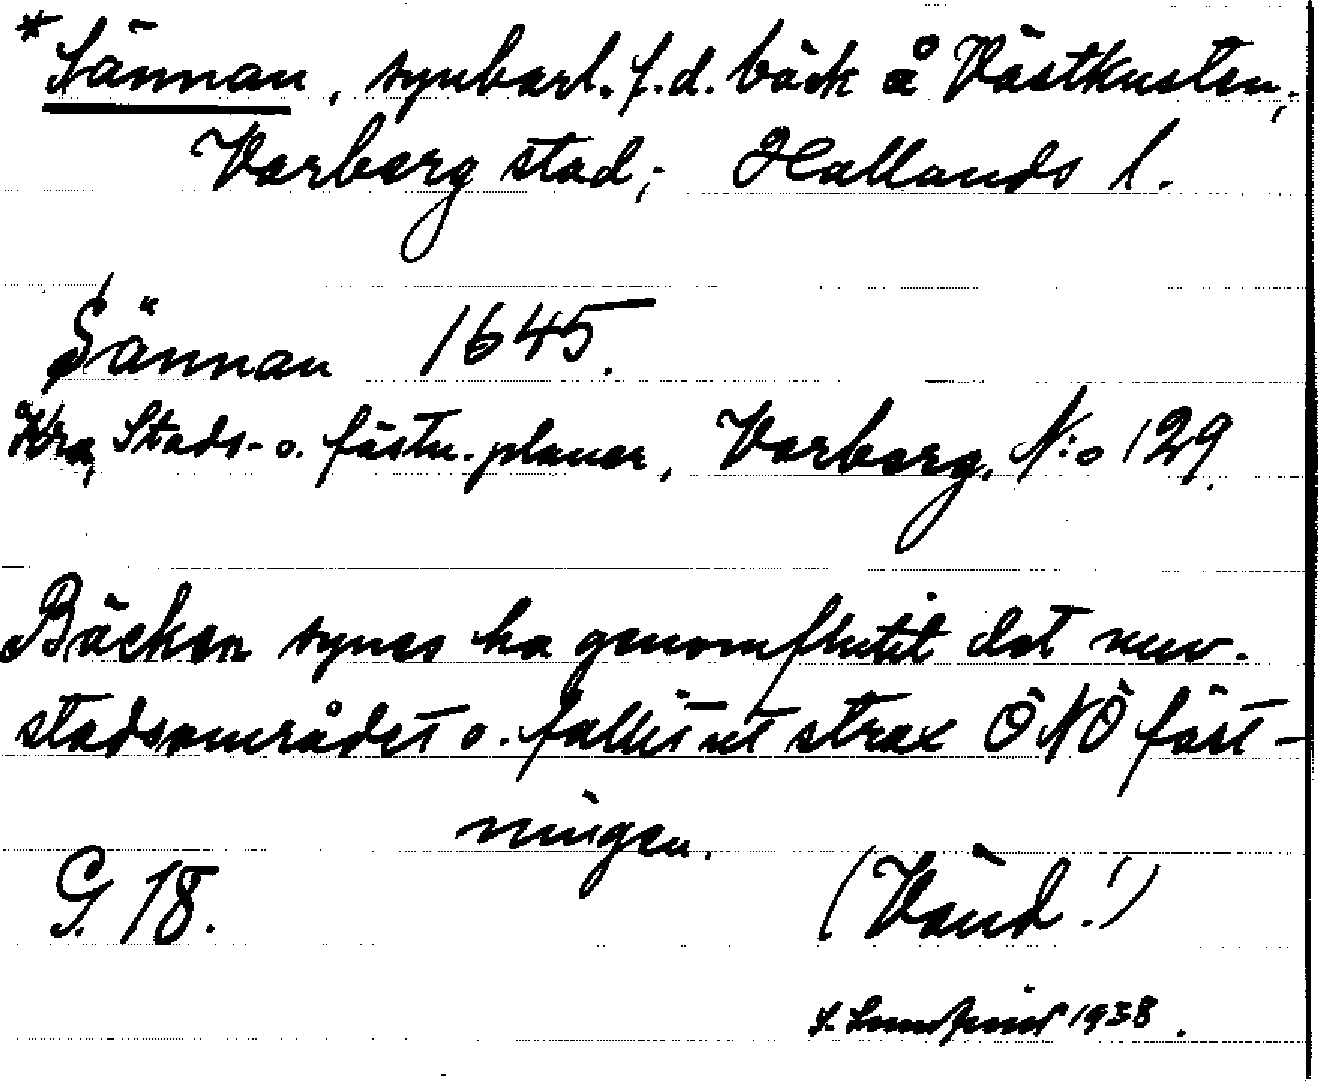 *Sännan, synbarl. f.d. bäck å Västkusten,
Varberg stad; Hallands l.
Sännan 1645.
Kra, Stads- o. fästn.planer, Varberg, N:o 129.
Bäcken synes ha genomflutit det nuv.
stadsområdet o. fallit ut strax ÖNÖ fäst-
ningen.
G. 18.
(Vänd!)
1938.